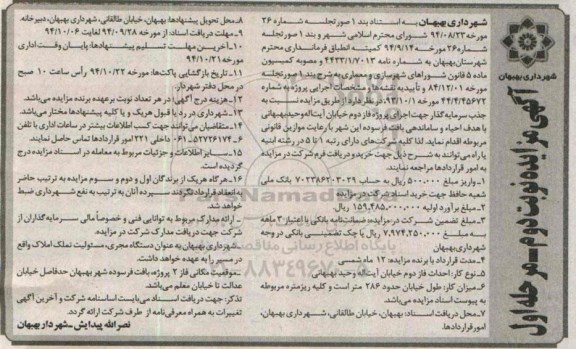 آگهی مزایده نوبت دوم - مرحله اول
شهرداری بهبهان
شهرداری بهبهان به استناد بند ۱ صورتجلسه شماره ۲۶
مورخه ۹۴/۰۸/۲۳ شورای محترم اسلامی شهر و بند ۱ صورتجلسه
شماره ۲۶ مورخه ۹۴/۹/۱۴ کمیته انطباق فرمانداری محترم
شهرستان بهبهان به شماره نامه ۴۴۳۳/۱/۷۰۱۳ و مصوبه کمیسیون
ماده ۵ قانون شوراهای شهرسازی و معماری به شرح بند ۱ صورتجلسه
مورخه ۸۴/۱۲/۰۱ و تأییدیه نقشه‌ها و مشخصات اجرایی پروژه به شماره
۴۴/۴/۴۵۶۷۲ مورخه ۹۳/۱۰/۰۱، در نظر دارد از طریق مزایده نسبت به
جذب سرمایه‌گذار جهت اجرای پروژه فاز دوم خیابان آیت‌اله وحید بهبهانی
با هدف احیاء و ساماندهی بافت فرسوده این شهر با رعایت موازین قانونی
مربوطه اقدام نماید. لذا کلیه شرکت‌های دارای رتبه ۱ تا ۵ در رشته ابنیه
یا راه می‌توانند به شرح ذیل جهت خرید و دریافت فرم شرکت در مزایده
به امور قراردادها مراجعه نمایند.
۱ـ واریز مبلغ ۵۰۰،۰۰۰ ریال به حساب ۷۰۲۳۸۶۲۰۳۰۲۹ بانک ملی
شعبه حافظ جهت خرید اسناد شرکت در مزایده
۲ـ مبلغ برآورد اولیه ۱۵۹،۴۸۵،۰۰۰،۰۰۰ ریال می‌باشد.
۳ـ مبلغ تضمین شرکت در مزایده: ضمانت‌نامه بانکی با اعتبار ۳ ماهه
به مبلغ ۷،۹۷۴،۲۵۰،۰۰۰ ریال یا چک تضمینی بانکی در وجه
شهرداری بهبهان
۴ـ مدت قرارداد با برنده مزایده: ۱۲ ماه شمسی
۵ـ نوع کار: احداث فاز دوم خیابان آیت‌اله وحید بهبهانی
۶ـ میزان کار: طول خیابان حدود ۲۸۶ متر است و کلیه ریزمتره مربوطه
به پیوست اسناد مزایده می‌باشد.
۷ـ محل دریافت اسناد: بهبهان، خیابان طالقانی، شهرداری بهبهان،
امور قراردادها.
۸ـ محل تحویل پیشنهادها: بهبهان، خیابان طالقانی، شهرداری بهبهان، دبیرخانه.
۹ـ مهلت دریافت اسناد: از مورخه ۹۴/۰۹/۲۸ لغایت ۹۴/۱۰/۰۶
۱۰ـ آخرین مهلت تسلیم پیشنهادها: پایان وقت اداری
مورخه ۹۴/۱۰/۲۱
۱۱ـ تاریخ بازگشایی پاکت‌ها: مورخه ۹۴/۱۰/۲۲ رأس ساعت ۱۰ صبح
در محل دفتر شهردار.
۱۲ـ هزینه درج آگهی: در هر تعداد نوبت بر عهده برنده مزایده می‌باشد.
۱۳ـ شهرداری در رد یا قبول هر یک و یا کلیه پیشنهادها مختار می‌باشد.
۱۴ـ متقاضیان می‌توانند جهت کسب اطلاعات بیشتر در ساعات اداری با تلفن
۵۲۷۲۶۱۷۴ـ۰۶۱ داخلی ۲۲۱ امور قراردادها تماس حاصل نمایند.
۱۵ـ سایر اطلاعات و جزئیات مربوط به معامله در اسناد مزایده درج
گردیده است.
۱۶ـ هرگاه هریک از برندگان اول و دوم و سوم مزایده به ترتیب حاضر
به انعقاد قرارداد نگردند سپرده آنان به ترتیب به نفع شهرداری ضبط
خواهد شد.
ـ ارائه مدارک مربوط به توانایی فنی و خصوصاً مالی سرمایه‌گذاران از
شرکت جهت دریافت مدارک شرکت در مزایده.
ـ شهرداری بهبهان به عنوان دستگاه مجری، مسئولیت تملک املاک واقع
در مسیر را به عهده خواهد داشت.
ـ موقعیت مکانی فاز ۲ پروژه، بافت فرسوده شهر بهبهان حدفاصل خیابان
عدالت تا خیابان معلم می‌باشد.
تذکر: جهت دریافت اسناد می‌بایست اساسنامه شرکت و آخرین آگهی
تغییرات به همراه معرفی‌نامه از طرف شرکت ارائه گردد.
نصراله پیدایش ـ شهردار بهبهان